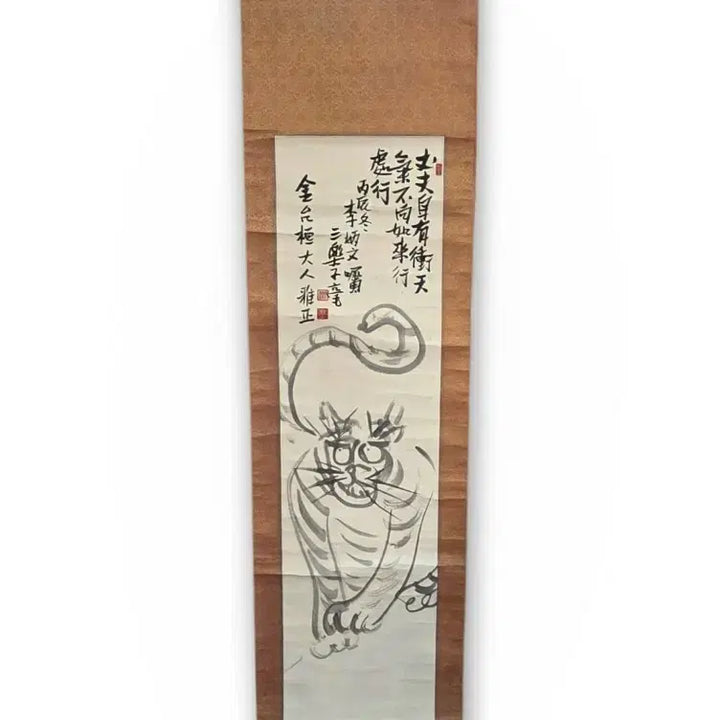 丈夫自有衝天
氣不向如來行
處行
丙辰冬
李炳文囑
三樂子
金允大人雅正